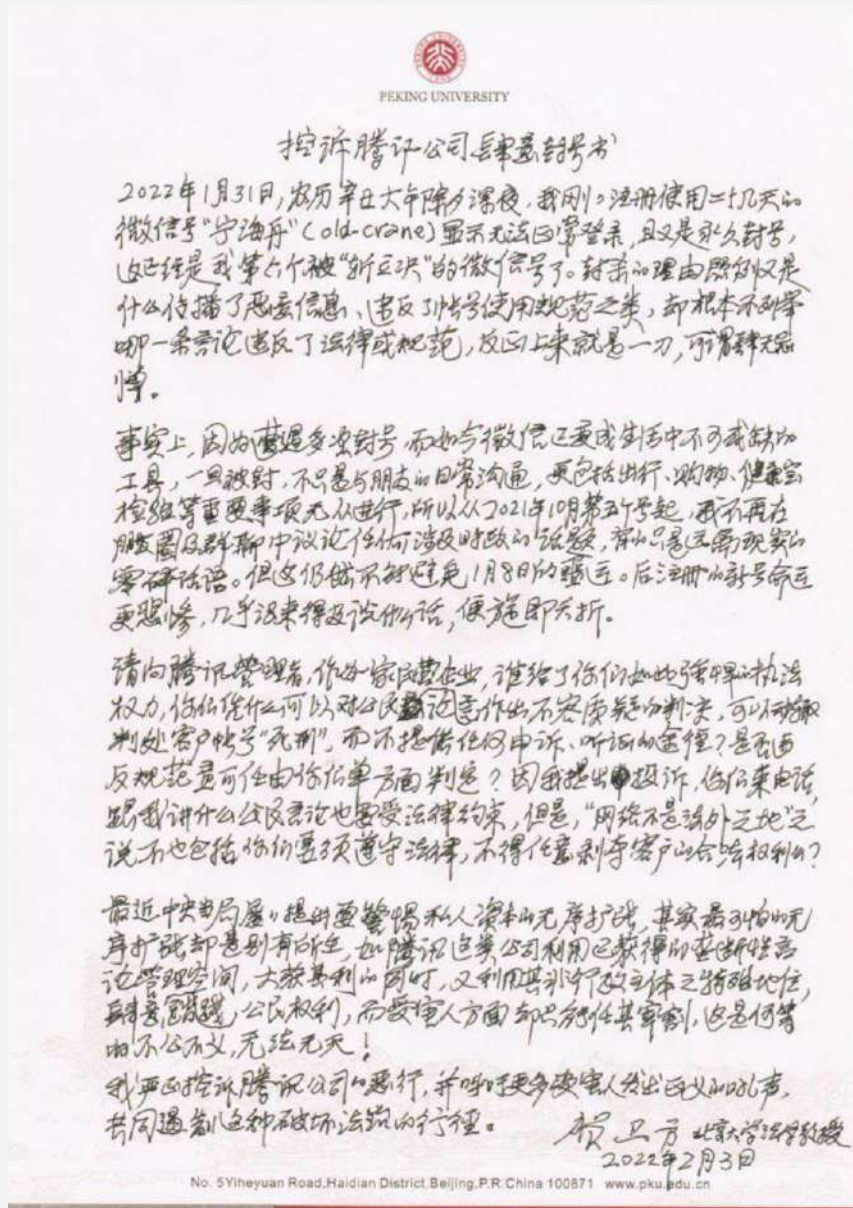 PEKING UNIVERSITY
控诉腾讯公司肆意封号书
2022年1月31日,农历辛丑大年除夕深夜,我刚刚注册使用二十几天的
微信号“宁海舟”(old-crane)显示无法正常登录,且又是永久封号,
这已经是我第六个被“斩立决”的微信号了。封杀的理由照例又是
什么传播了恶意信息、违反了帐号使用规范之类,却根本不列举
哪一条言论违反了法律或规范,反正上来就是一刀,可谓肆无忌
惮。
事实上,因为遭遇多次封号,而如今微信已变成生活中不可或缺的
工具,一旦被封,不只是与朋友的日常沟通,更包括出行、购物、健康宝
检验等重要事项无从进行,所以从2021年10月第五个号起,我不再在
朋友圈及群聊中议论任何涉及时政的话题,有的只是远离现实的
零碎话语。但这仍然不能避免1月8日的噩运。后注册的新号命运
更悲惨,几乎没来得及说什么话,便旋即夭折。
请问腾讯管理者,作为一家民营企业,谁给了你们如此强悍的执法
权力,你们凭什么可以对公民言论作出不容质疑的判决,可以动辄
判处客户帐号“死刑”,而不提供任何申诉、听证的途径?是否违
反规范竟可任由你们单方面判定?因我提出投诉,你们来电话,
跟我讲什么公民言论也要受法律约束,但是,“网络不是法外之地”之
说不也包括你们要须遵守法律,不得任意剥夺客户的合法权利么?
最近中央当局屡屡提出要警惕私人资本的无序扩张,其实最可怕的无
序扩张却是别有所在,如腾讯这类公司利用已获得的垄断性言
论管理空间,大获其利的同时,又利用其非行政主体之特殊地位,
肆意践踏公民权利,而受害人方面却只能任其宰割,这是何等
的不公不义,无法无天!
我严正控诉腾讯公司的恶行,并呼吁更多受害人发出正义的吼声,
共同遏制这种破坏法治的行径。
贺卫方 北京大学法学教授
2022年2月3日
No. 5Yiheyuan Road,Haidian District,Beijing,P.R.China 100871 www.pku.edu.cn